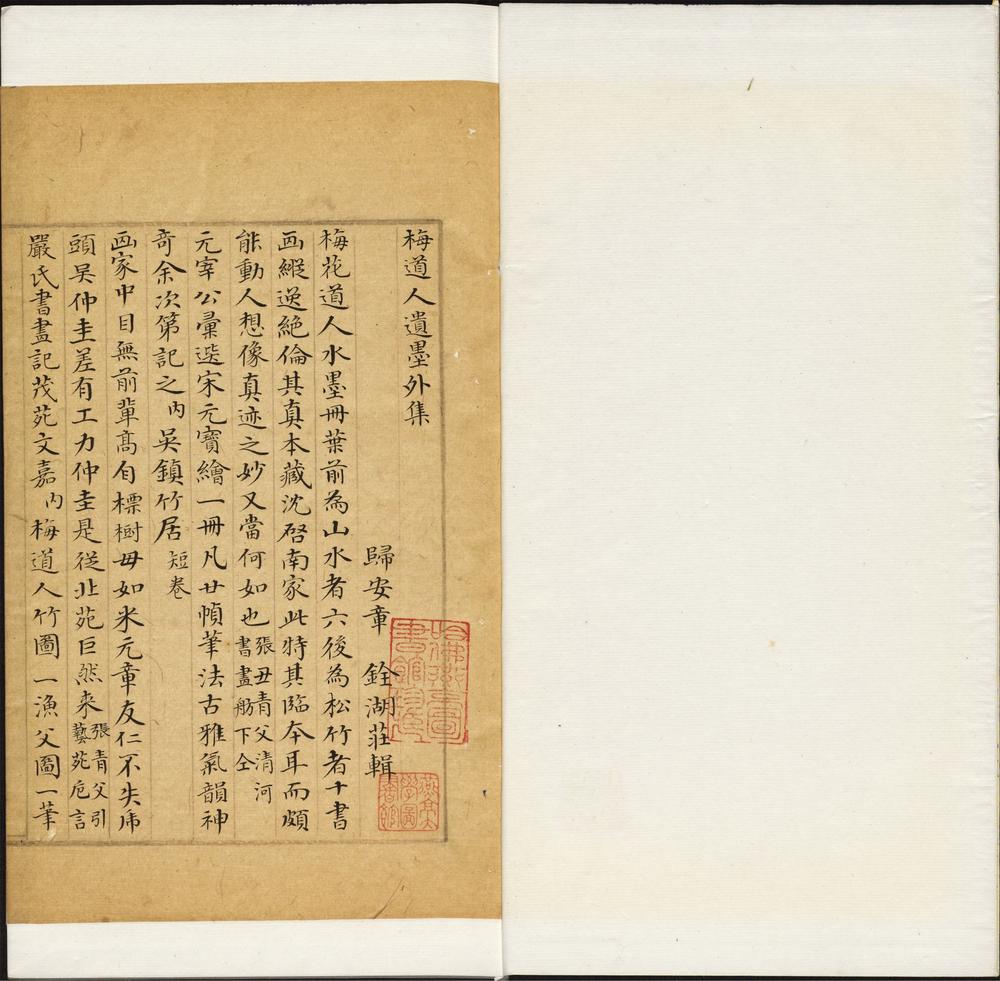 梅道人遺墨外集
歸安章 銓湖莊輯
梅花道人水墨冊葉前為山水者六後為松竹者十書
画縱逸絕倫其真本藏沈啓南家此特其臨本耳而頗
能動人想像真迹之妙又當何如也張丑青父清河書畫舫下仝
元宰公彙選宋元寶繪一冊凡廿幀筆法古雅氣韻神
奇余次第記之内吳鎮竹居短卷
画家中目無前輩高自標樹毋如米元章友仁不失虎
頭吳仲圭差有工力仲圭是從北苑巨然来張青父引藝苑卮言
嚴氏書畫記茂苑文嘉内梅道人竹圖一漁父圖一筆
哈佛燕京圖書館珍藏印